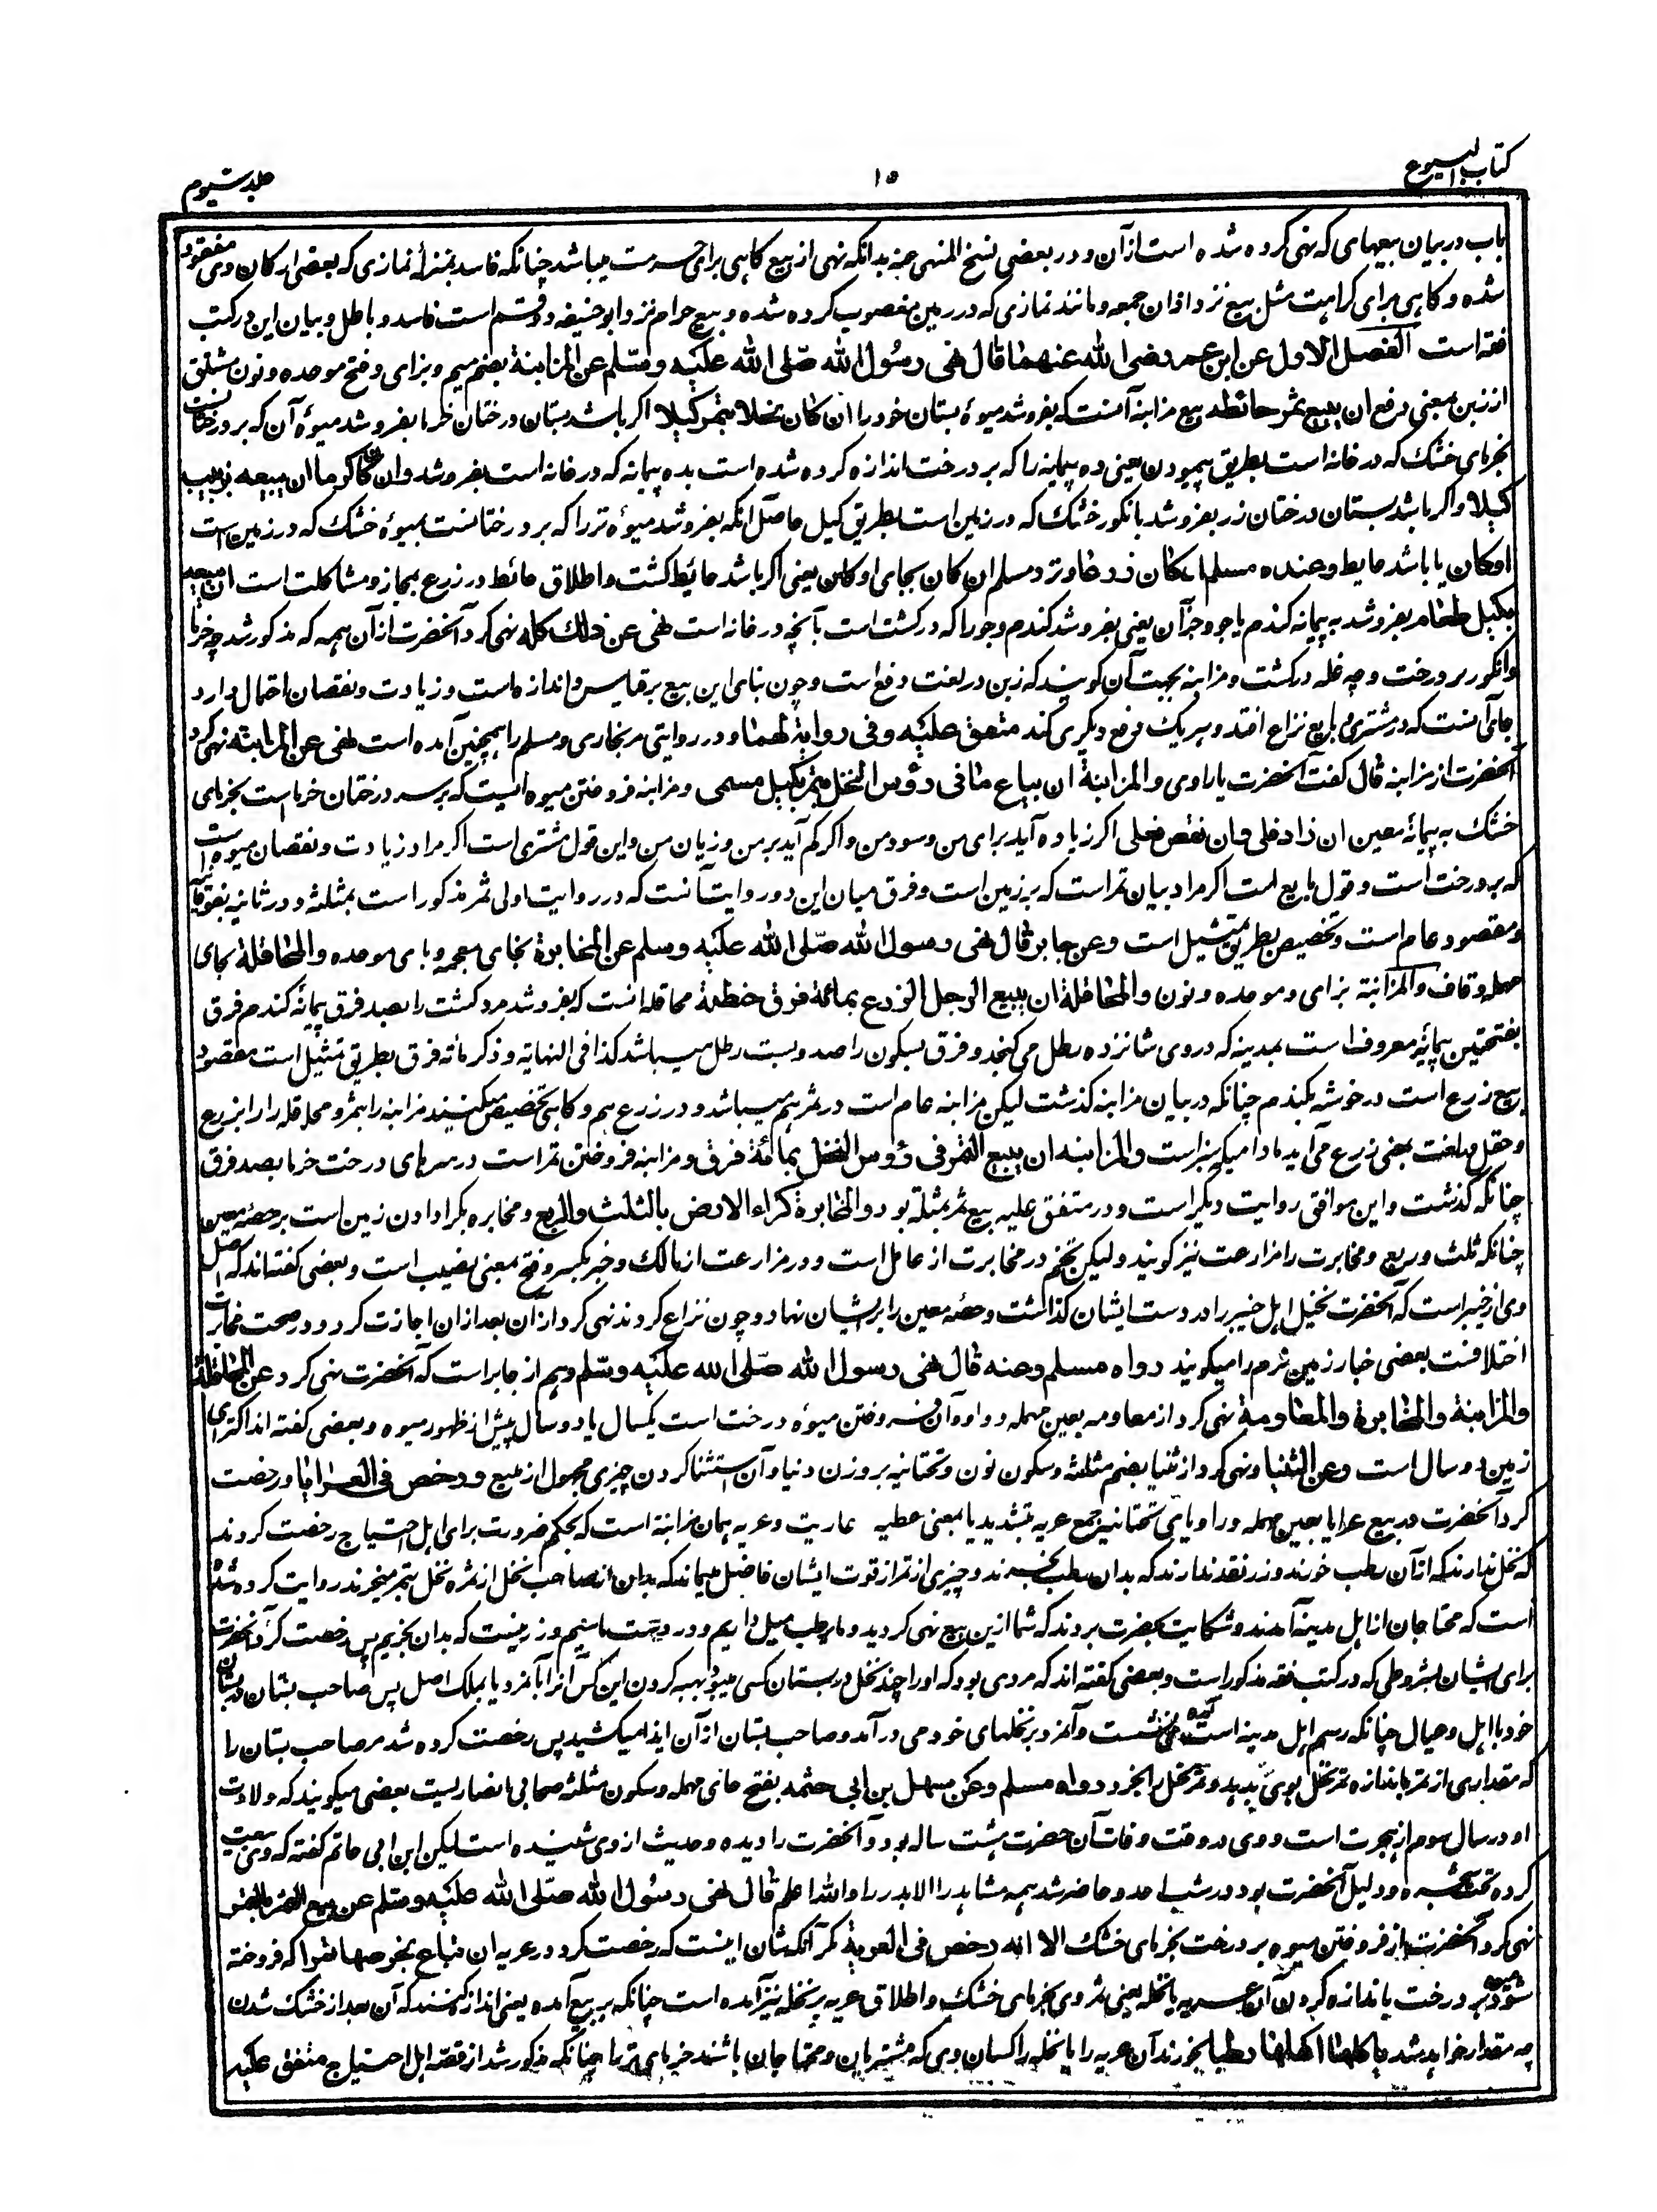 کتاب البیوع
۱۵
جلد سیوم
باب در بیان بیعهای که نهی کرده شده است از آن و در بعضی نسخ المنهی عنه بدانکه نهی از بیع کاهی برای حرمت میباشد چنانکه فاسد بمنزلهٔ نمازی که بعضی ارکان وی مفقود
شده و کاهی برای کراهت مثل بیع نزد اذان جمعه و مانند نمازی که در زمین مغصوب کرده شده و بیع حرام نزد ابو حنیفه دو قسم است فاسد و باطل و بیان این در کتب
فقه است الفصل الاول عن ابن عمر رضی الله عنهما قال نهی رسول الله صلی الله علیه وسلم عن المزابنة بضم میم و بزای و فتح موحده و نون مشتق
از زبن بمعنی دفع ان یبیع ثمر حائطه بیع مزابنه آنست که بفروشد میوهٔ بستان خود را ان کان نخلا بتمر کیلا اکر باشد بستان درختان خرما بفروشد میوهٔ آن که بر درختانست
بخرمای خشک که در خانه است بطریق پیمودن یعنی ده پیمانه را که بر درخت اندازه کرده شده است بده پیمانه که در خانه است بفروشد وان کان کرما ان یبیعه بزبیب
کیلا و اکر باشد بستان درختان زر بفروشد بانکور خشک که در زمین است بطریق کیل حاصل آنکه بفروشد میوهٔ تر را که بر درختانست بمیوهٔ خشک که در زمین است
او کان یا باشد حایط وعند مسلم ان کان زرعا و نزد مسلم ان کان بجای او کان یعنی اکر باشد حائط کشت و اطلاق حائط در زرع بمجاز و مشاکلت است ان یبیعه
بکیل طعام بفروشد به پیمانه کندم یا جو و جز آن یعنی بفروشد کندم و جو را که در کشت است بآنچه در خانه است نهی عن ذلك کله نهی کرد آنحضرت از آن همه که مذکور شد چه خرما
و انکور بر درخت و چه غله در کشت و مزابنه بجهت آن کویند که زبن در لغت دفع است و چون بنای این بیع بر قیاس و اندازه است و زیادت و نقصان احتمال دارد
جای آنست که در مشتری و بایع نزاع افتد و هر یک دفع دیکری کند متفق علیه وفی روایة لهما و در روایتی مر بخاری و مسلم را همچنین آمده است نهی عن المزابنة نهی کرد
آنحضرت از مزابنه قال کفت آنحضرت یا راوی والمزابنة ان یباع ما فی رؤس النخل بتمر بکیل مسمی و مزابنه فروختن میوه ایست که بر سر درختان خرماست بخرمای
خشک به پیمانهٔ معین ان زاد فلی وان نقص فعلی اکر زیاده آید برای من و سود من و اکر کم آید بر من و زیان من و این قول مشتری است اکر مراد زیادت و نقصان میوه است
که بر درخت است و قول بایع است اکر مراد بیان تمر است که بر زمین است و فرق میان این دو روایت آنست که در روایت اولی ثمر مذکور است بمثلثه و در ثانیه بفوقانیه
و مقصود عام است و تخصیص بطریق تمثیل است وعن جابر قال نهی رسول الله صلی الله علیه وسلم عن المخابرة بخای معجمه و بای موحده والمحاقلة بحای
مهمله و قاف والمزابنة بزای و موحده و نون والمحاقلة ان یبیع الرجل الزرع بمائة فرق حنطة محاقله آنست که بفروشد مرد کشت را بصد فرق پیمانهٔ کندم فرق
بفتحتین پیمانهٔ معروف است بمدینه که در وی شانزده رطل می کنجد و فرق بسکون را صد و بست رطل میباشد کذا فی النهایة و ذکر مائه فرق بطریق تمثیل است مقصود
بیع زرع است در خوشه بکندم چنانکه در بیان مزابنه کذشت لیکن مزابنه عام است در ثمر هم میباشد و در زرع هم و کاهی تخصیص میکنند مزابنه را بثمر و محاقله را بزرع
و حقل در لغت بمعنی زرع می آید مادام که سبز است والمزابنة ان یبیع التمر فی رؤس النخل بمائة فرق و مزابنه فروختن تمر است در سرهای درخت خرما بصد فرق
چنانکه کذشت و این موافق روایت دیکر است و در متفق علیه بیع ثمر بمثلثه بود والمخابرة کراء الارض بالثلث والربع و مخابره بکرا دادن زمین است بر حصهٔ معین
چنانکه ثلث و ربع و مخابرت را مزارعت نیز کویند و لیکن تخم در مخابرت از عامل است و در مزارعت از مالک و خبر بکسر و فتح بمعنی نصیب است و بعضی کفته اند که اصل
وی از خیبر است که آنحضرت نخیل اهل خیبر را در دست ایشان کذاشت و حصهٔ معین را بر ایشان نهاد و چون نزاع کردند نهی کرد از آن بعد ازان اجازت کرد و در صحت مخابرت
اختلافست بعضی خبار زمین نرم را میکویند رواه مسلم وعنه قال نهی رسول الله صلی الله علیه وسلم و هم از جابر است که آنحضرت نهی کرد عن المحاقلة
والمزابنة والمخابرة والمعاومة نهی کرد از معاومه بعین مهمله و واو و آن فروختن میوهٔ درخت است یکسال یا دو سال پیش از ظهور میوه و بعضی کفته اند اکترای
زمین دو سال است وعن الثنیا و نهی کرد از ثنیا بضم مثلثه و سکون نون و تحتانیه بروزن دنیا و آن استثنا کردن چیزی مجهول از مبیع ورخص فی العرایا و رخصت
کرد آنحضرت در بیع عرایا بعین مهمله و را و یای تحتانیه جمع عریه بتشدید یا بمعنی عطیه عاریت و عریه همان مزابنه است که بحکم ضرورت برای اهل احتیاج رخصت کردند
که نخل ندارند که از آن رطب خورند و زر نقد ندارند که بدان رطب بخرند و چیزی از تمر از قوت ایشان فاضل میماند که بدان از صاحب نخل از ثمره نخل بتمر میخرند روایت کرده شده
است که محتاجان از اهل مدینه آمدند و شکایت بحضرت بردند که شما ازین بیع نهی کردید و ما برطب میل داریم و در دست ما سیم و زر نیست که بدان بخریم پس رخصت کرد آنحضرت
برای ایشان بشروطی که در کتب فقه مذکور است و بعضی کفته اند که مردی بود که او را چند نخل در بستان کسی میبود بهبه کردن این کس آنرا بآنمرد یا بملک اصل پس صاحب بستان در بستان
خود با اهل و عیال چنانکه رسم اهل مدینه است آمده می نشست و آنمرد بر نخلهای خود می درآمد و صاحب بستان از آن ایذا میکشید پس رخصت کرده شد مر صاحب بستان را
که مقداری از تمر باندازه ثمر نخل بوی بدهد و ثمر نخل را بخرد رواه مسلم وعن سهل بن ابی حثمه بفتح حای مهمله و سکون مثلثه صحابی انصاریست بعضی میکویند که ولادت
او در سال سوم از هجرت است و وی در وقت وفات آن حضرت هشت ساله بود و آنحضرت را دیده و حدیث از وی شنیده است لیکن ابن ابی حاتم کفته که وی بیعت
کرده تحت شجره و دلیل آنحضرت بود در شب احد و حاضر شد همه مشاهد را الا بدر را والله اعلم قال نهی رسول الله صلی الله علیه وسلم عن بیع الثمر بالتمر
نهی کرد آنحضرت از فروختن میوه بر درخت بخرمای خشک الا انه رخص فی العریة مکر آنکه شان اینست که رخصت کرد در عریه ان تباع بخرصها تمرا که فروخته
شود میوه بر درخت باندازه کردن آن عریه یا نخله یعنی ثمر وی بخرمای خشک و اطلاق عریه بر نخله نیز آمده است چنانکه بر بیع آمده یعنی اندازه کنند که آن بعد از خشک شدن
چه مقدار خواهد شد یاکلها اهلها رطبا بخورند آن عریه را یا نخله را کسان وی که مشتریان و محتاجان باشند خرمای تر را چنانکه مذکور شد از قصه اهل احتیاج متفق علیه